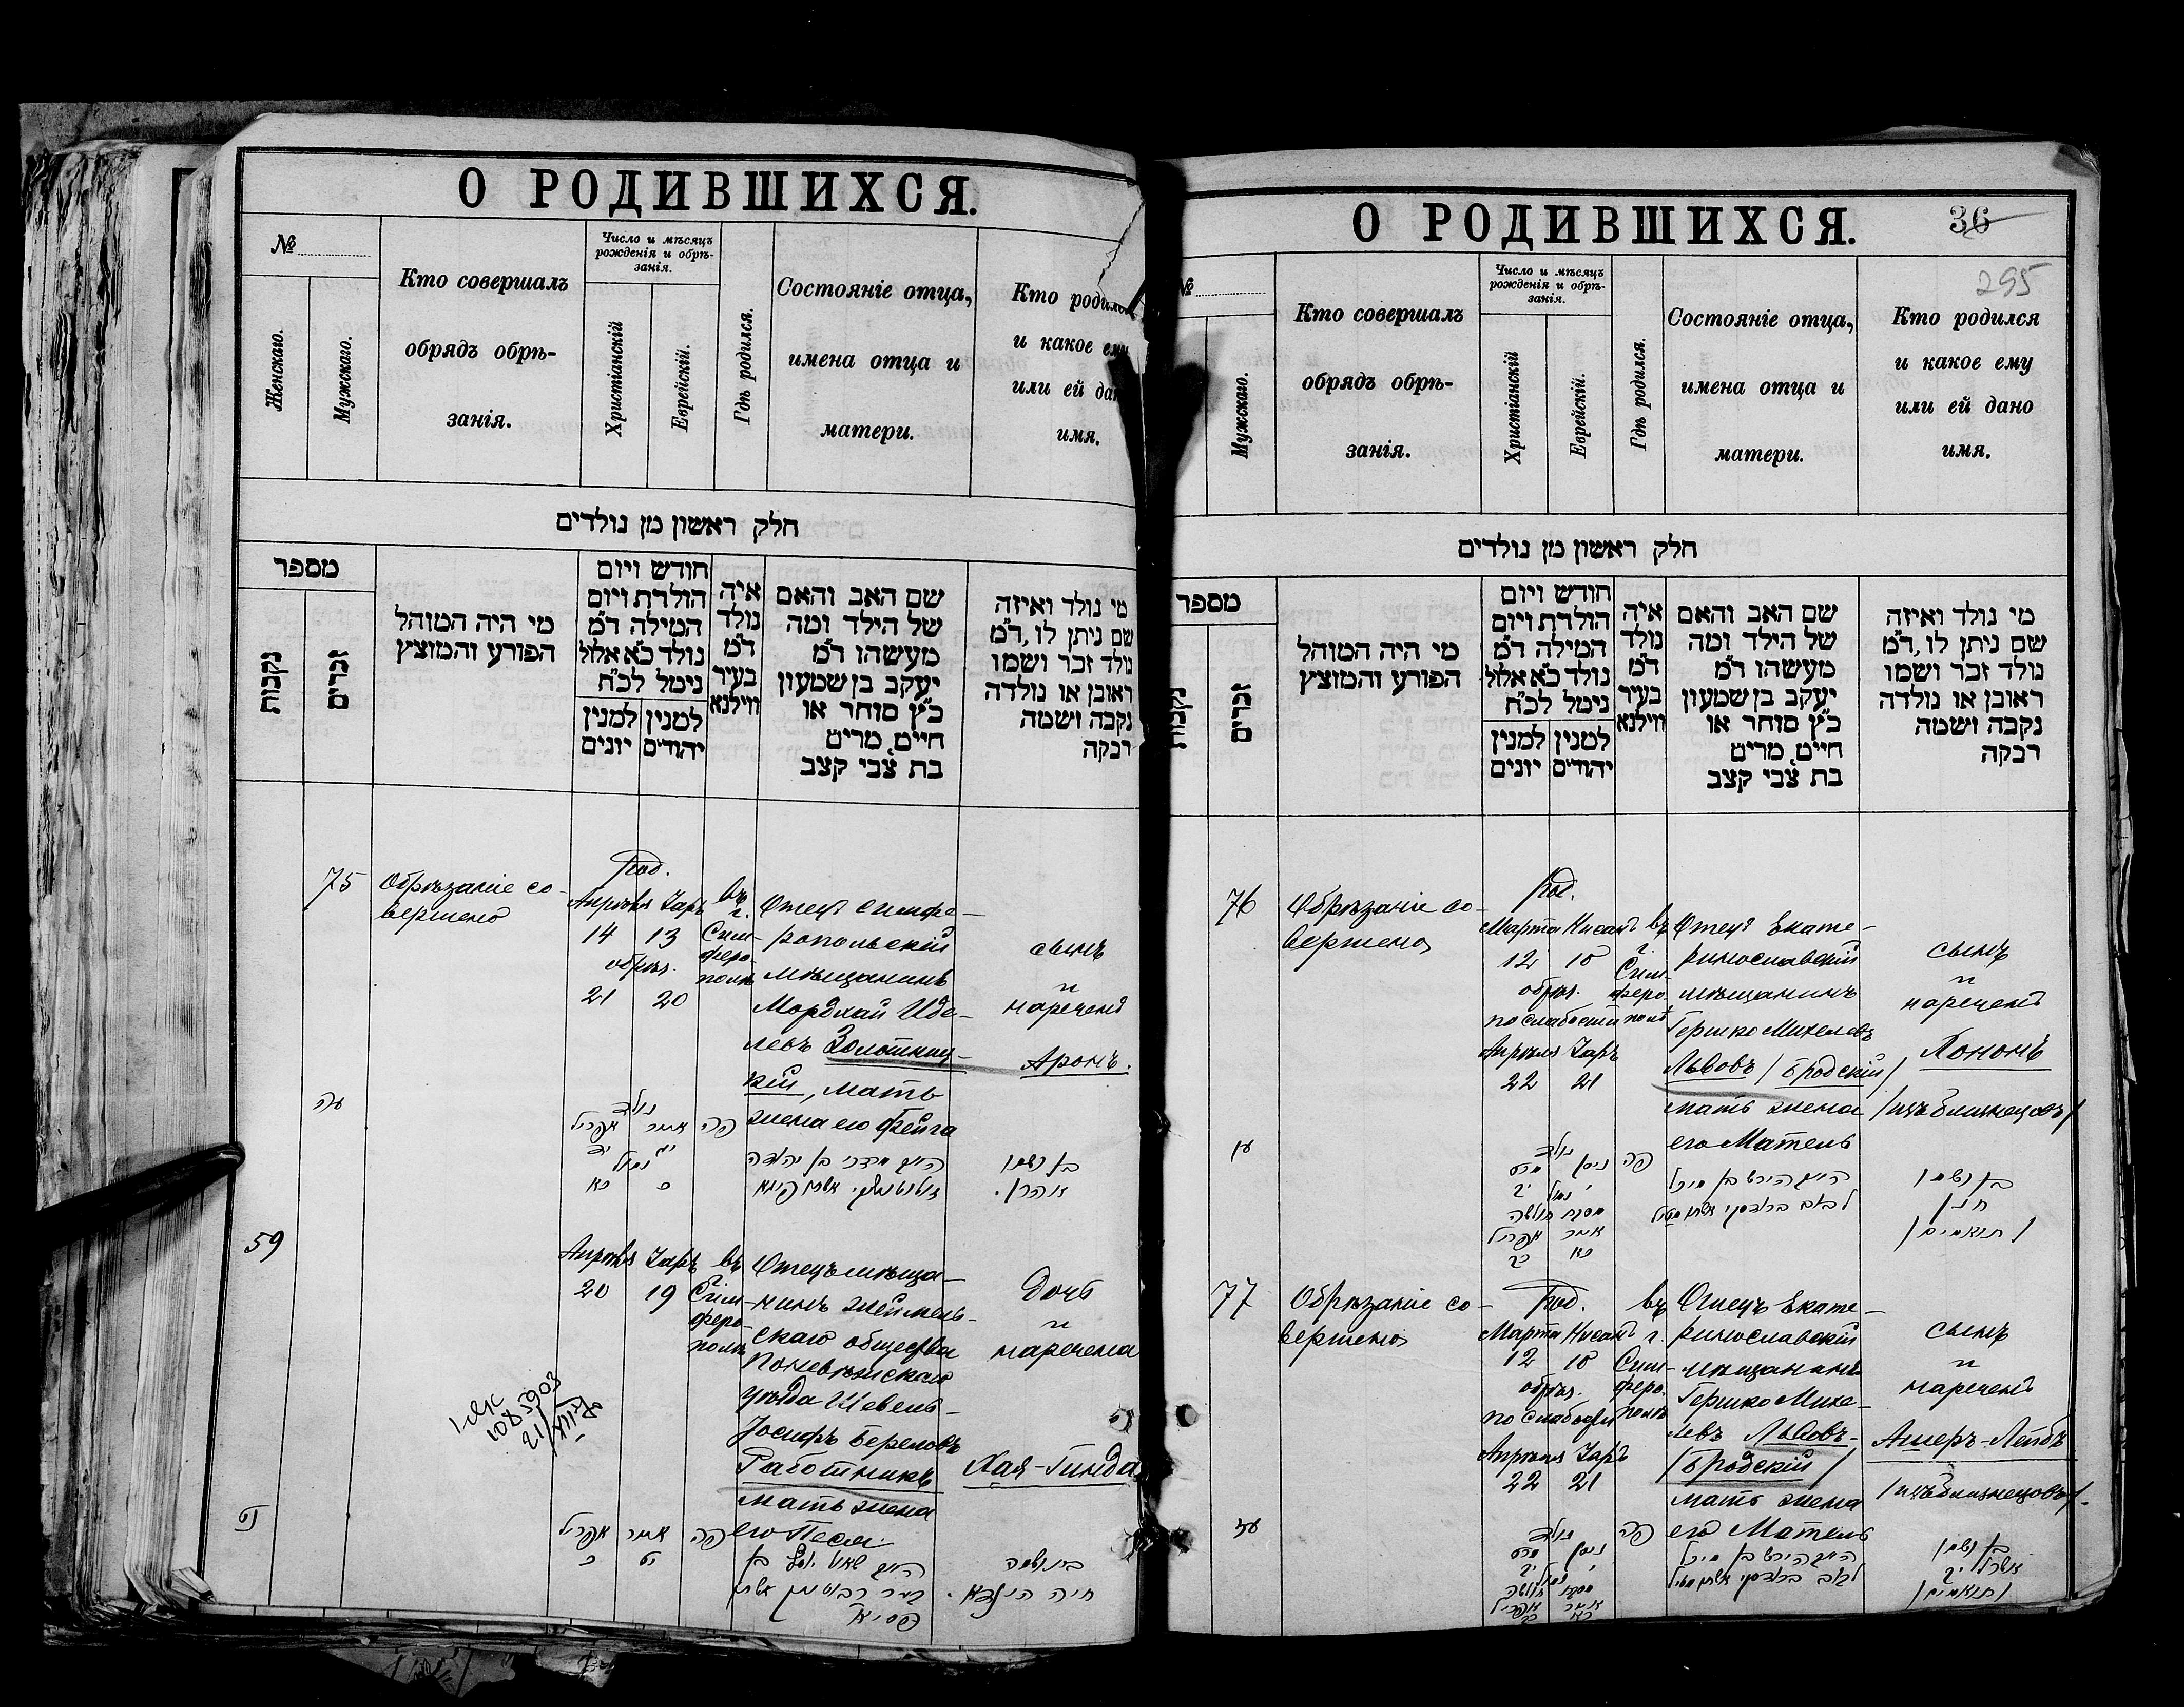 О РОДИВШИХСЯ.
№
Женскаго.
Мужскаго.
Кто совершалъ
обрядъ обрѣ-
занія.
Число и мѣсяцъ
рожденія и обрѣ-
занія.
Христіанскій
Еврейскій.
Гдѣ родился.
Состояніе отца,
имена отца и
матери.
Кто родился
и какое ему
или ей дано
имя.
חלק ראשון מן נולדים
מספר
נקבות
זכרים
מי היה המוהל
הפורע והמוצץ
חודש ויום
הולדת ויום
המילה ד״מ
נולד כ״א אלול
נימל לכ״ח
למנין יונים
למנין יהודים
איה
נולד
ד״מ
בעיר
ווילנא
שם האב והאם
של הילד ומה
מעשהו ד״מ
יעקב בן שמעון
כ״ץ סוחר או
חיים, מרים
בת צבי קצב
מי נולד ואיזה
שם ניתן לו, ד״מ
נולד זכר ושמו
ראובן או נולדה
נקבה ושמה
רבקה
75
Обрѣзаніе со-
вершено
Род.
Апрѣля Іаръ
14 13
обрѣз.
21 20
въ
г.
Сим-
феро-
полѣ
Отецъ симфе-
ропольскій
мѣщанинъ
Мордхай Иде-
левъ Золотниц-
кій, мать
жена его Фейга
сынъ
и
нареченъ
Аронъ.
עה
נולד
אפריל אייר פה
59
Апрѣля Іаръ
20 19
въ
г.
Сим-
феро-
полѣ
Отецъ мѣща-
нинъ Жеймель-
скаго общества
Поневѣжскаго
уѣзда Шевель-
Іосифъ Береловъ
Работникъ
мать жена
его Песя
дочь
и
наречена
Хая-Гинда
1085903
נט
אפריל אייר פה
О РОДИВШИХСЯ.
36
295
№
Мужскаго.
Кто совершалъ
обрядъ обрѣ-
занія.
Число и мѣсяцъ
рожденія и обрѣ-
занія.
Христіанскій
Еврейскій.
Гдѣ родился.
Состояніе отца,
имена отца и
матери.
Кто родился
и какое ему
или ей дано
имя.
חלק ראשון מן נולדים
מספר
נקבות
זכרים
מי היה המוהל
הפורע והמוצץ
חודש ויום
הולדת ויום
המילה ד״מ
נולד כ״א אלול
נימל לכ״ח
למנין יונים
למנין יהודים
איה
נולד
ד״מ
בעיר
ווילנא
שם האב והאם
של הילד ומה
מעשהו ד״מ
יעקב בן שמעון
כ״ץ סוחר או
חיים, מרים
בת צבי קצב
מי נולד ואיזה
שם ניתן לו, ד״מ
נולד זכר ושמו
ראובן או נולדה
נקבה ושמה
רבקה
76
Обрѣзаніе со-
вершено
Род.
Марта Нисанъ
12 10
обрѣз.
по слабости
Апрѣля Іаръ
22 21
въ
г.
Сим-
феро-
полѣ
Отецъ Екате-
ринославскій
мѣщанинъ
Гершко Михелевъ
Львовъ /Бродскій/
мать жена
его Матель
сынъ
и
нареченъ
Хононъ
/изъ близнецовъ/
עו
נולד
מרט ניסן פה
/תואמים/
77
Обрѣзаніе со-
вершено
Род.
Марта Нисанъ
12 10
обрѣз.
по слабости
Апрѣля Іаръ
22 21
въ
г.
Сим-
феро-
полѣ
Отецъ Екате-
ринославскій
мѣщанинъ
Гершко Михе-
левъ Львовъ-
/Бродскій/
мать жена
его Матель
сынъ
и
нареченъ
Ашеръ-Лейбъ
/изъ близнецовъ/.
עז
נולד
מרט ניסן פה
/תואמים/